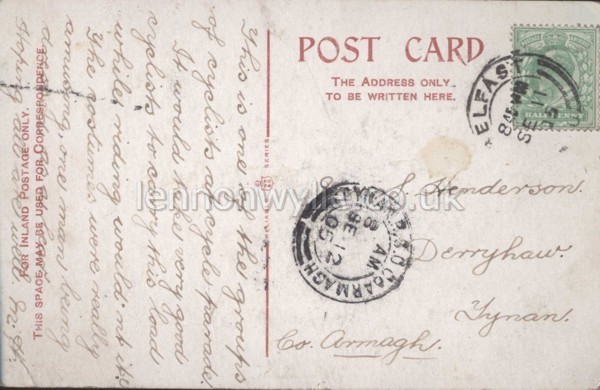 POST CARD
THE ADDRESS ONLY
TO BE WRITTEN HERE.
FOR INLAND POSTAGE ONLY.
THIS SPACE MAY BE USED FOR CORRESPONDENCE
This is one of the groups
of cyclists at cycle parade.
It would take very good
cyclists to carry this load
while riding wouldn't it?
The costumes were really
amusing, one man being
Hoping all are well
SERIES
J. Henderson.
Derryhaw.
Tynan.
Co. Armagh.
HALFPENNY
ELFAS
SE 11
TYNAN R.S.O. CO ARMAGH
8 AM
SE 12
05
lennonwylie.co.uk